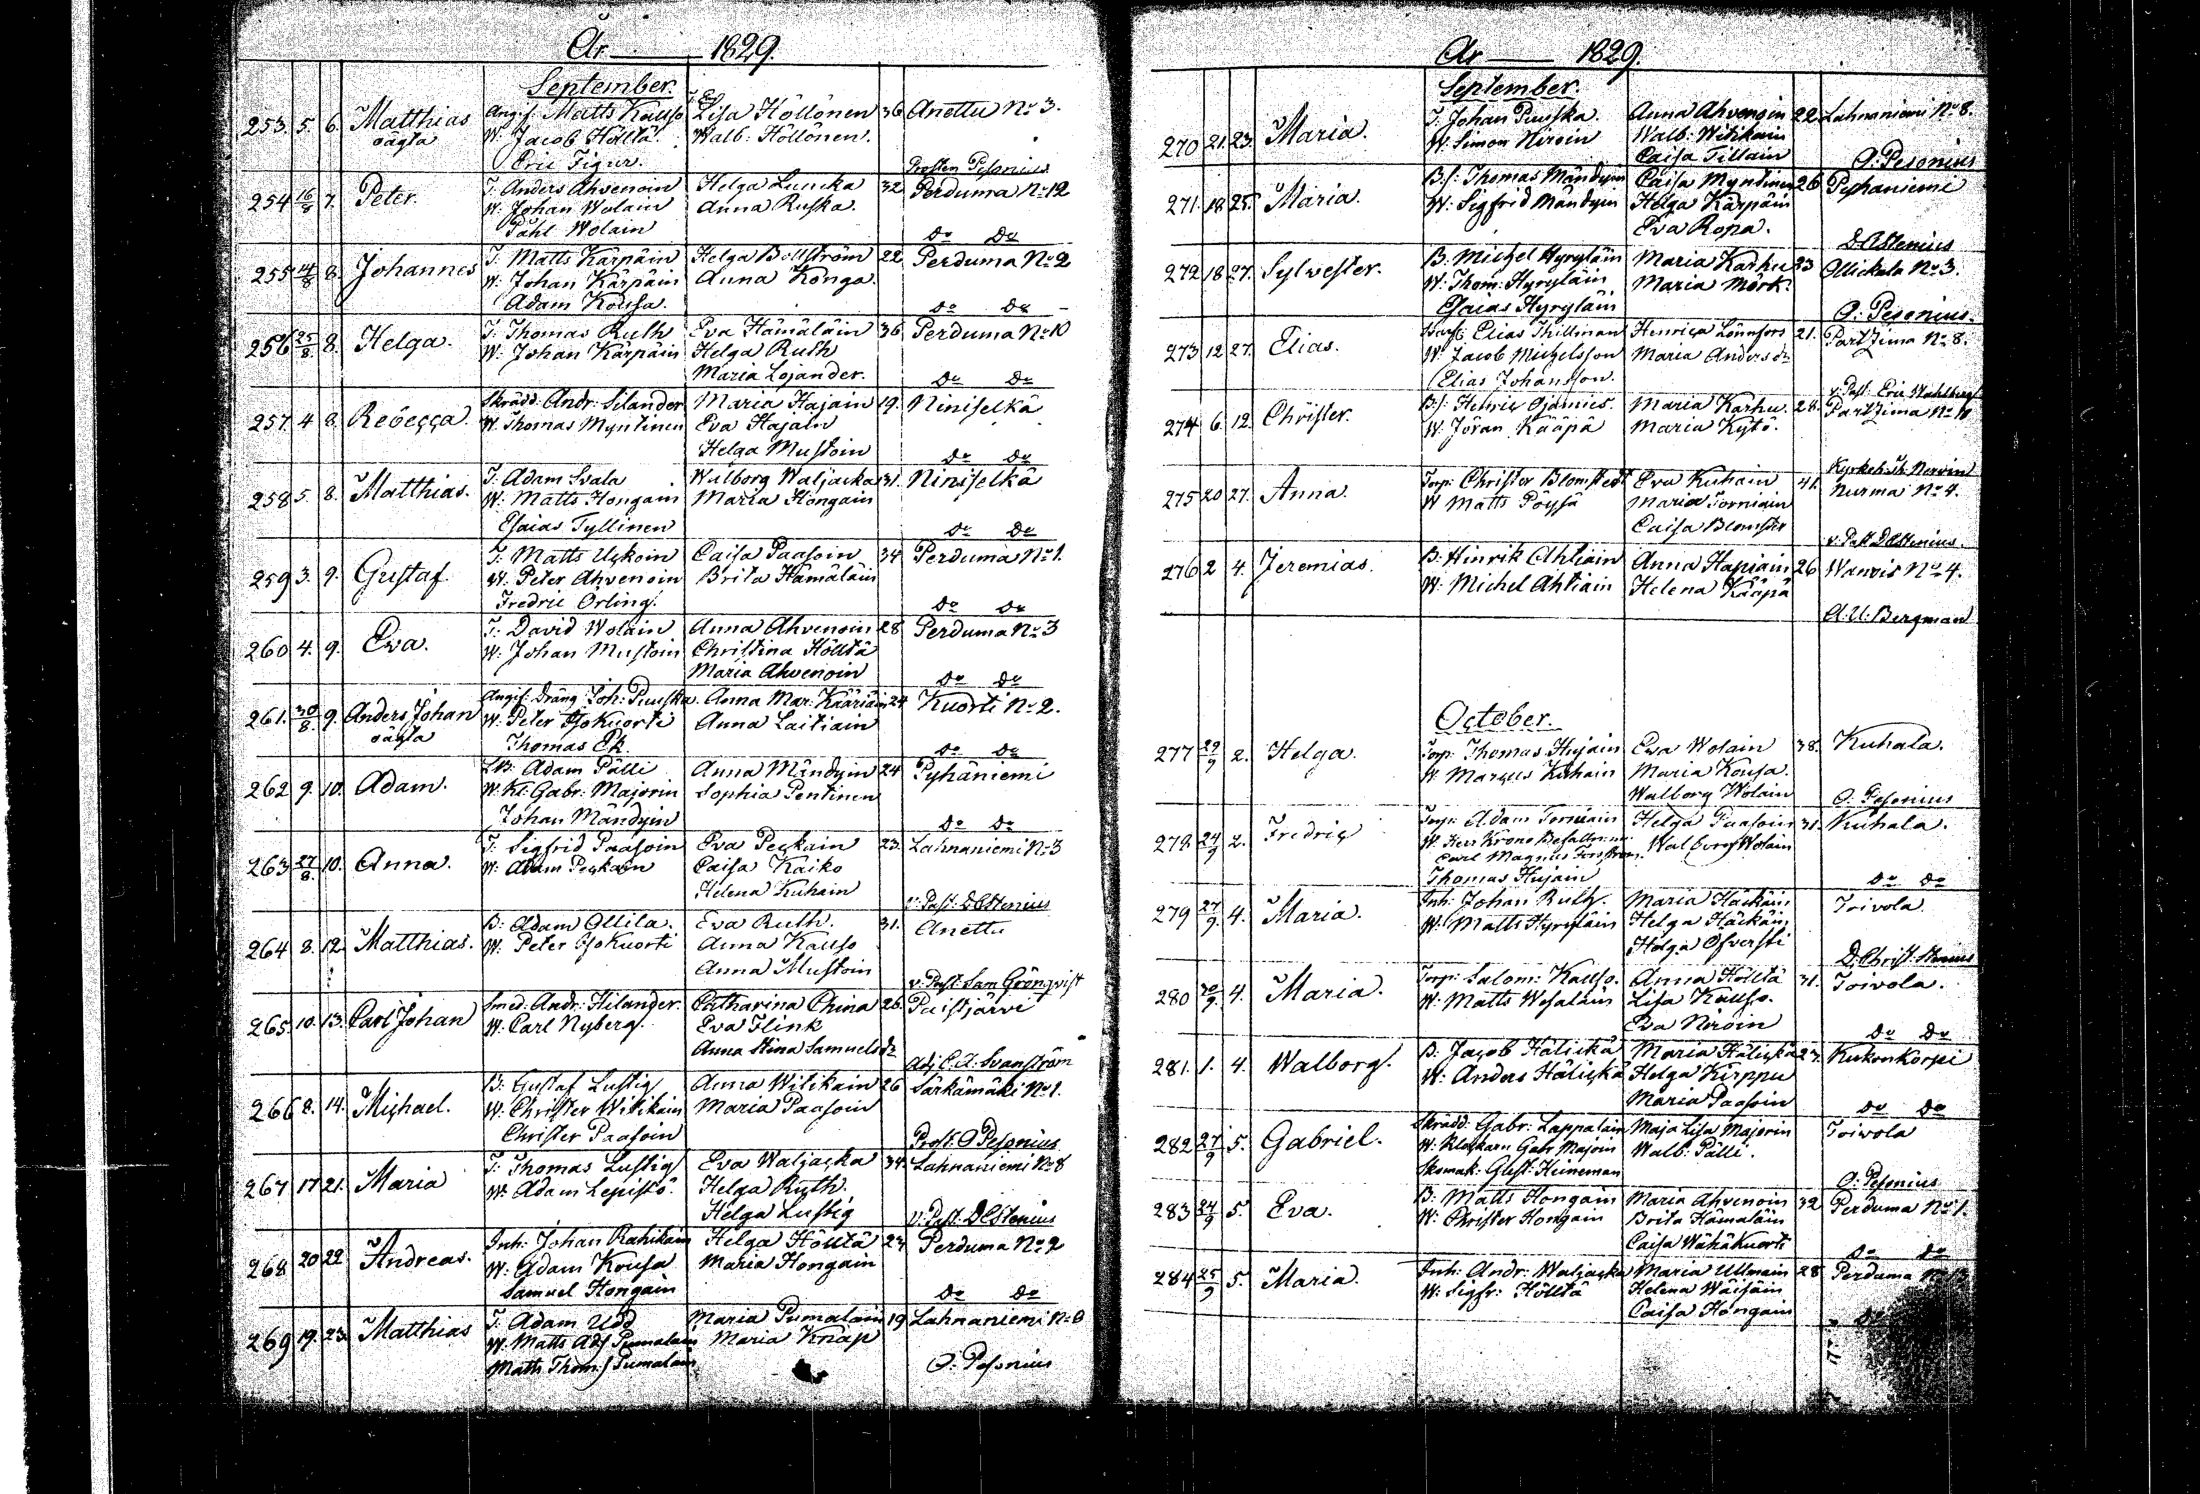 År 1829.
September.
253. 5. 6. Matthias Angif. Matts Kauso Lisa Höllönen 36 Anettu No 3.
oägta W. Jacob Hölltä. Walb. Höllönen.
Eric Figur. Prosten Pesonius
254 16/8 7. Peter. T. Anders Ahvenoin Helga Luucka 32 Perduma No 12
W. Johan Wolain Anna Ruska.
Påhl Wolain Do Do
255 14/8 8. Johannes T. Matts Kärpäin Helga Bollström 22 Perduma No 2
W. Johan Kärpäin Anna Konga.
Adam Kousa. Do Do
256 25/8 8. Helga. T. Thomas Ruth Eva Hämäläin 36. Perduma No 10
W. Johan Kärpäin Helga Ruth
Maria Lojander. Do Do
257. 4 8. Rebecca. Skrädd. Andr. Silander Maria Hajain 19. Niniselkä
W. Thomas Myntinen Eva Hajain
Helga Mustoin Do Do
258 5. 8. Matthias. T. Adam Svala Walborg Waljacka 31. Niniselkä
W. Matts Hongain Maria Hongain
Esaias Tyllinen Do Do
259 3. 9. Gustaf. T. Matts Uskoin Caisa Paasoin 34 Perduma No 1.
W. Peter Ahvenoin Brita Hämäläin
Fredric Örling. Do Do
260 4. 9. Eva. T. David Wolain Anna Ahvenoin 28 Perduma No 3
W. Johan Mustoin Christina Hölltä
Maria Ahvenoin Do Do
261. 30/8. 9. Anders Johan Angif. Dräng Joh. Puuska. Anna Mar. Kääriäin 24 Kuorti No 2.
oägta W. Peter IsoKuorti Anna Laitiain
Thomas Ek. Do Do
262 9. 10. Adam. LB. Adam Pälli Anna Mändyin 24 Pyhäniemi
W. Kl. Gabr. Majorin Sophia Pentinen
Johan Mändyin Do Do
263 27/8. 10. Anna. T. Sigfrid Paasoin Eva Peskain 23. Lahnaniemi No 3
W. Adam Peskain Caisa Kaiko
Helena Kuhain v. Past. D Stenius
264 8. 12. Matthias. B. Adam Ollila. Eva Ruth. 31. Anettu
W. Peter IsoKuorti Anna Kauso
Anna Mustoin v. Past. Sam Grönqvist
265. 10. 13. Carl Johan Smed. Andr. Hilander. Catharina China 26. Paistjärvi
W. Carl Nyberg. Eva Flink
Anna Stina Samuels dr Adj. C. A. Svanström
266 8. 14. Michael. B. Gustaf Lustig Anna Witikain 26 Särkämäki No 1.
W. Christer Witikain Maria Paasoin
Christer Paasoin Prost. O Pesonius
267 17 21. Maria T. Thomas Lustig Eva Waljacka 34. Lahnaniemi No 8
W. Adam Lepistö. Helga Ruth.
Helga Lustig v. Past. D Stenius
268 20 22. Andreas. Inh. Johan Rahikain Helga Hölltä 23 Perduma No 2
W. Adam Kousa Maria Hongain
Samuel Hongain Do Do
269 19. 23. Matthias T. Adam Udd Maria Pumalain 19 Lahnaniemi No
W. Matts Ads Pumalain Maria Knap
Matts Thoms Pumalain O. Pesonius
År 1829.
September.
270 21. 23. Maria. T. Johan Puuska. Anna Ahvenoin 22. Lahnaniemi No 8.
W. Simon Niroin Walb. Witikain
Caisa Tillain O. Pesonius
271. 18 25. Maria. B.s. Thomas Mändyin Caisa Myntinen 26 Pyhaniemi
W. Sigfrid Mändyin Helga Kärpäin
Eva Ropa. D. Stenius
272 18 27. Sylvester. B. Michel Hyryläin Maria Karhu 23 Ollickala No 3.
W. Thom. Hyryläin Maria Mörk.
Esaias Hyryläin O. Pesonius.
273 12 27. Elias. Elias Thillman Henrica Lönnfors 21. Partzima No 8.
W. Jacob Michelsson Maria Anders dr
Elias Johansson. v. Past. Eric Wahlberg
274 6. 12. Christer. B.s. Henric Ojamies. Maria Karhu. 28. Partzima No 11
W. Jöran Kääpä Maria Kytö.
Kyrkoh. Nervin
275 20 27. Anna. Torp. Christer Blomstedt Eva Kuhain 41. Nurma No 4.
W Matts Pöysä Maria Torniain
Caisa Blomster v. Past D Stenius.
276 2 4. Jeremias. B. Hinrik Ahtiain Anna Hapiain 26 Wanvis No 4.
W. Michel Ahtiain Helena Kääpä
A. U. Bergman
October.
277 29/9 2. Helga. Torp. Thomas Hujain Eva Wolain 38. Kuhala.
W. Marcus Kuhain Maria Kousa.
Walborg Wolain O. Pesonius
278. 24/9 2. Fredric Torp. Adam Torniain Helga Paasoin 31. Kuhala.
W. Herr Krono Befallnin: Walborg Wolain
Carl Magnus Forsström.
Thomas Hujain Do Do
279 27/9. 4. Maria. Inh. Johan Ruth. Maria Häckäin Toivola.
W. Matts Hyryläin Helga Häckäin
Helga Ofversti D. Christ. Stenius
280 30/9. 4. Maria. Torp. Salom. Kauso. Anna Hölltä 31. Toivola.
W. Matts Wesaläin Lisa Kauso.
Eva Niroin Do Do
281. 1. 4. Walborg. B. Jacob Hälickä Maria Hälickä 27. Kukonkorpi
W. Anders Hälickä Helga Kirppu
Maria Paasoin Do Do
282 27/9 5. Gabriel. Skrädd. Gabr. Lappalain Maja Lisa Majorin Toivola
W. Klockarn Gabr Majorin Walb. Pälli.
Skomak. Gust. Heineman O. Pesonius
283 24/9 5. Eva. B. Matts Hongain Maria Ahvenoin 32 Perduma No 1.
W. Christer Hongain Brita Hämäläin
Caisa WähäKuorti Do Do
284 25/9 5. Maria. Inh. Andr. Waljacka Maria Ullmain 28 Perduma No
W. Sigfr. Hölltä Helena Wäisäin
Caisa Hongain Do